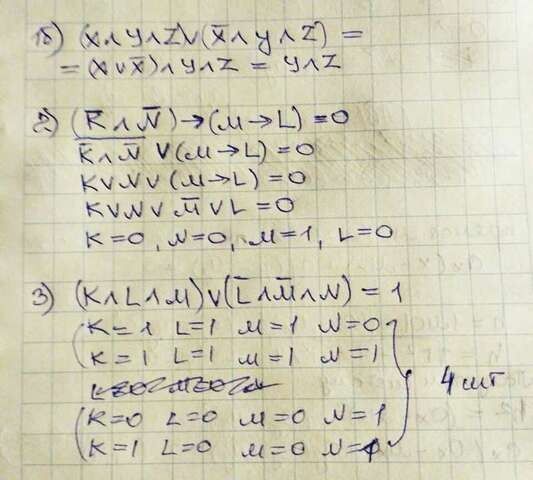 1б) (X∧Y∧Z)∨(X̄∧Y∧Z) =
= (X∨X̄)∧Y∧Z = Y∧Z
2) (K̄∧N̄)→(M→L)=0
K̄∧N̄ ∨(M→L)=0
K∨N∨(M→L)=0
K∨N∨M̄∨L=0
K=0, N=0, M=1, L=0
3) (K∧L∧M)∨(L̄∧M̄∧N)=1
K=1 L=1 M=1 N=0
K=1 L=1 M=1 N=1
4 шт
K=0 L=0 M=0 N=1
K=1 L=0 M=0 N=1